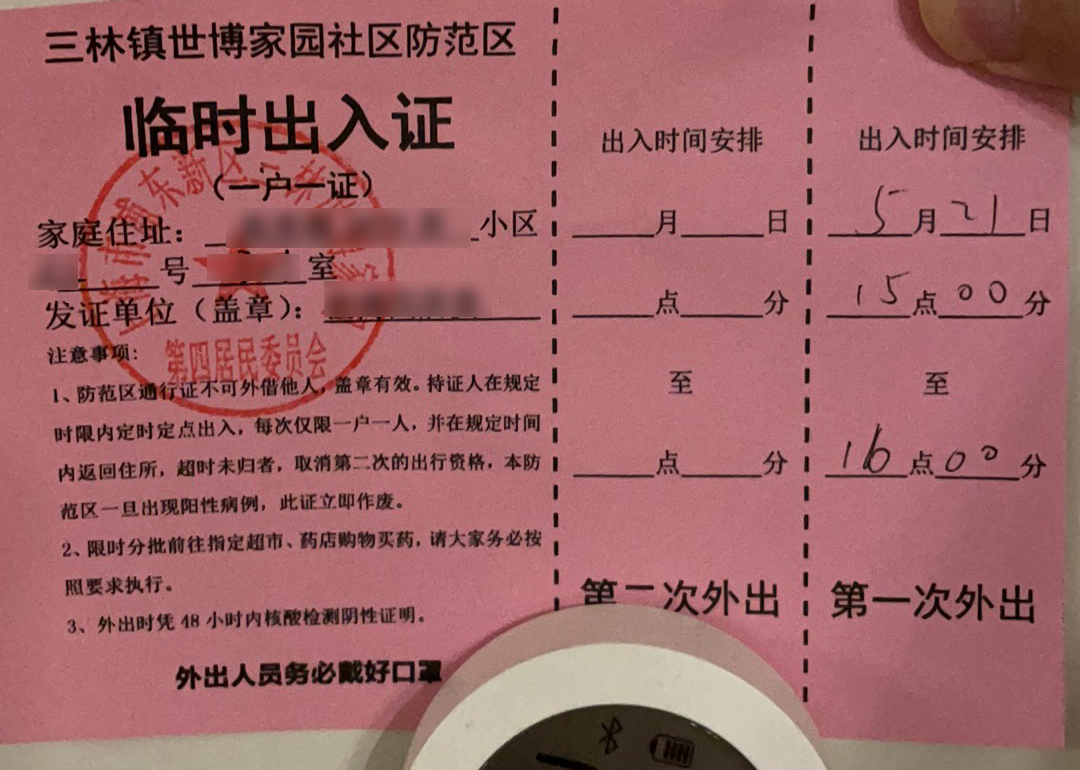 三林镇世博家园社区防范区
临时出入证
（一户一证）
家庭住址：小区
号 室
发证单位（盖章）：
第四居民委员会
注意事项：
1、防范区通行证不可外借他人，盖章有效。持证人在规定
时限内定时定点出入，每次仅限一户一人，并在规定时间
内返回住所，超时未归者，取消第二次的出行资格，本防
范区一旦出现阳性病例，此证立即作废。
2、限时分批前往指定超市、药店购物买药，请大家务必按
照要求执行。
3、外出时凭 48 小时内核酸检测阴性证明。
外出人员务必戴好口罩
出入时间安排
月 日
点 分
至
点 分
第二次外出
出入时间安排
5月21日
15点00分
至
16点00分
第一次外出